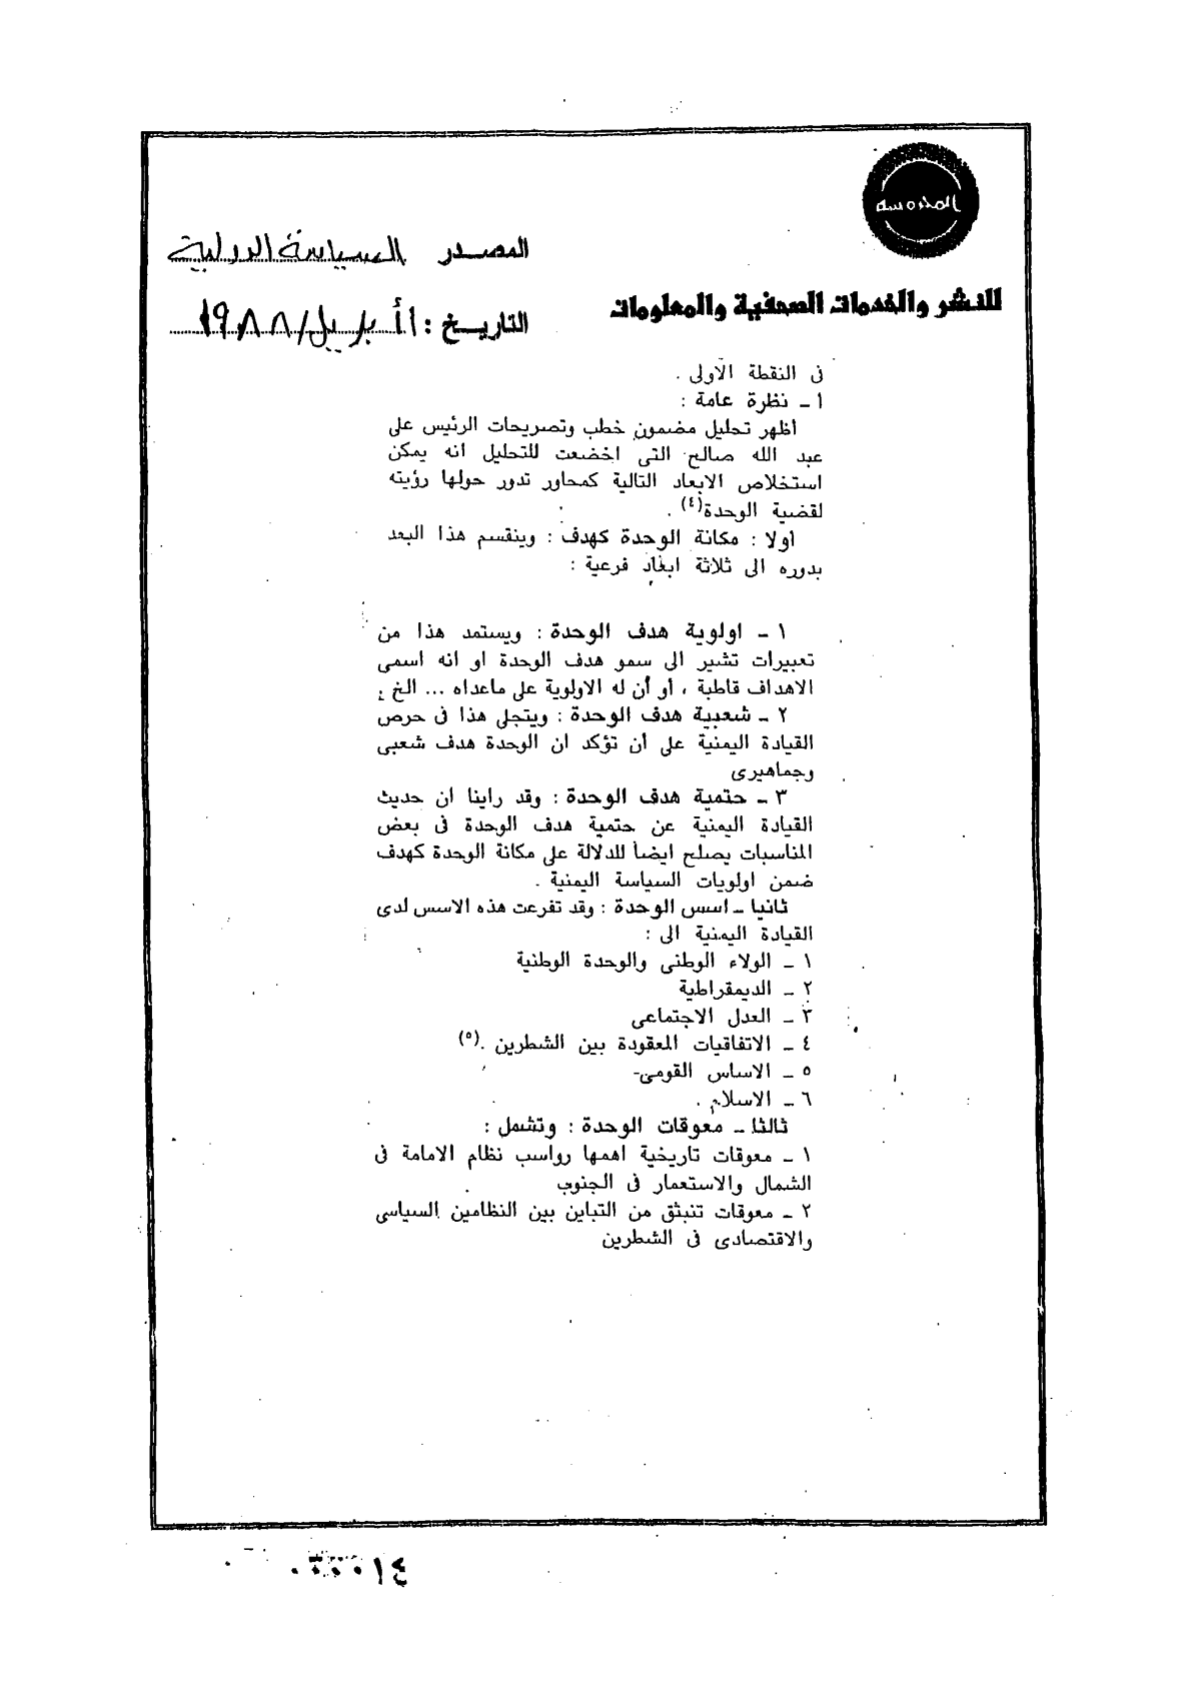 المحروسه
المصدر السياسة الدولية
للنشر والخدمات الصحفية والمعلومات
التاريخ : ١ أبريل/١٩٨٨
فى النقطة الأولى .
١ ـ نظرة عامة :
اظهر تحليل مضمون خطب وتصريحات الرئيس على
عبد الله صالح التى اخضعت للتحليل انه يمكن
استخلاص الابعاد التالية كمحاور تدور حولها رؤيته
لقضية الوحدة(٤) .
اولا : مكانة الوحدة كهدف : وينقسم هذا البعد
بدوره الى ثلاثة ابعاد فرعية :
١ ـ اولوية هدف الوحدة : ويستمد هذا من
تعبيرات تشير الى سمو هدف الوحدة او انه اسمى
الاهداف قاطبة ، أو أن له الاولوية على ماعداه ... الخ
٢ ـ شعبية هدف الوحدة : ويتجلى هذا فى حرص
القيادة اليمنية على أن تؤكد ان الوحدة هدف شعبى
وجماهيرى
٣ ـ حتمية هدف الوحدة : وقد راينا ان حديث
القيادة اليمنية عن حتمية هدف الوحدة فى بعض
المناسبات يصلح ايضا للدلالة على مكانة الوحدة كهدف
ضمن اولويات السياسة اليمنية .
ثانيا ـ اسس الوحدة : وقد تفرعت هذه الاسس لدى
القيادة اليمنية الى :
١ ـ الولاء الوطنى والوحدة الوطنية
٢ ـ الديمقراطية
٣ ـ العدل الاجتماعى
٤ ـ الاتفاقيات المعقودة بين الشطرين .(٥)
٥ ـ الاساس القومى
٦ ـ الاسلام .
ثالثا ـ معوقات الوحدة : وتشمل :
١ ـ معوقات تاريخية اهمها رواسب نظام الامامة فى
الشمال والاستعمار فى الجنوب
٢ ـ معوقات تنبثق من التباين بين النظامين السياسى
والاقتصادى فى الشطرين